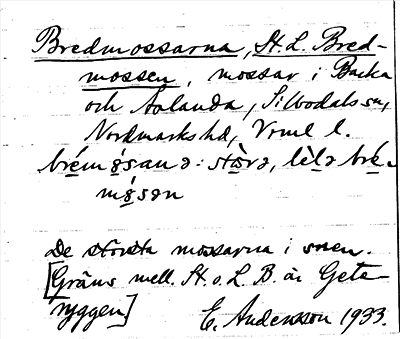 Bredmossarna, St. L. Bred-
mossen, mossar i Backa
och Åolanda, Silbodals sn,
Nordmarks hd, Vrml l.
bre̍mo̍sana : sto̍ra, lìla bre̍-
mo̍sən
De största mossarna i snen.
[Gräns mell. St. o. L. B. är Gete-
ryggen] E. Andersson 1933.